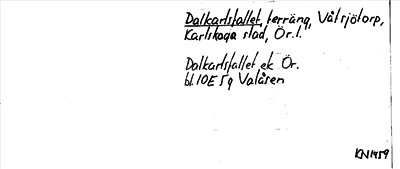 Dalkarlsfallet, terräng, Våtsjötorp,
Karlskoga stad, Ör.l.
Dalkarlsfallet ek Ör.
bl. 10E 5g Valåsen
KN1459